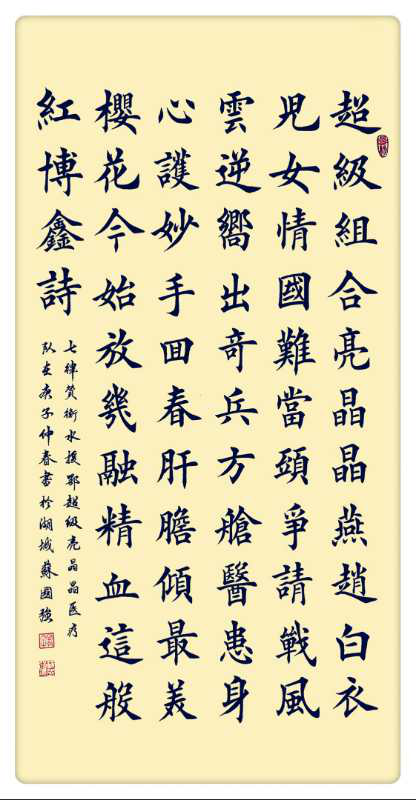 超級組合亮晶晶燕趙白衣
児女情國難當頭爭請戰風
雲逆嚮出奇兵方艙醫患身
心護妙手囬春肝膽傾最美
櫻花今始放幾融精血這般
紅博鑫詩
七律贊衡水援鄂超級亮晶晶医疗
队庚子仲春書於湖城蘇國強